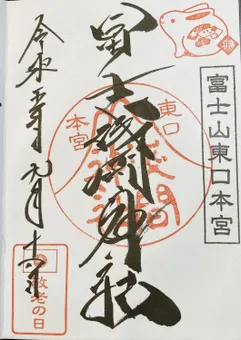 富士山東口本宮
冨士浅間神社
東口
本宮
令和五年九月十八日
敬老の日
卯